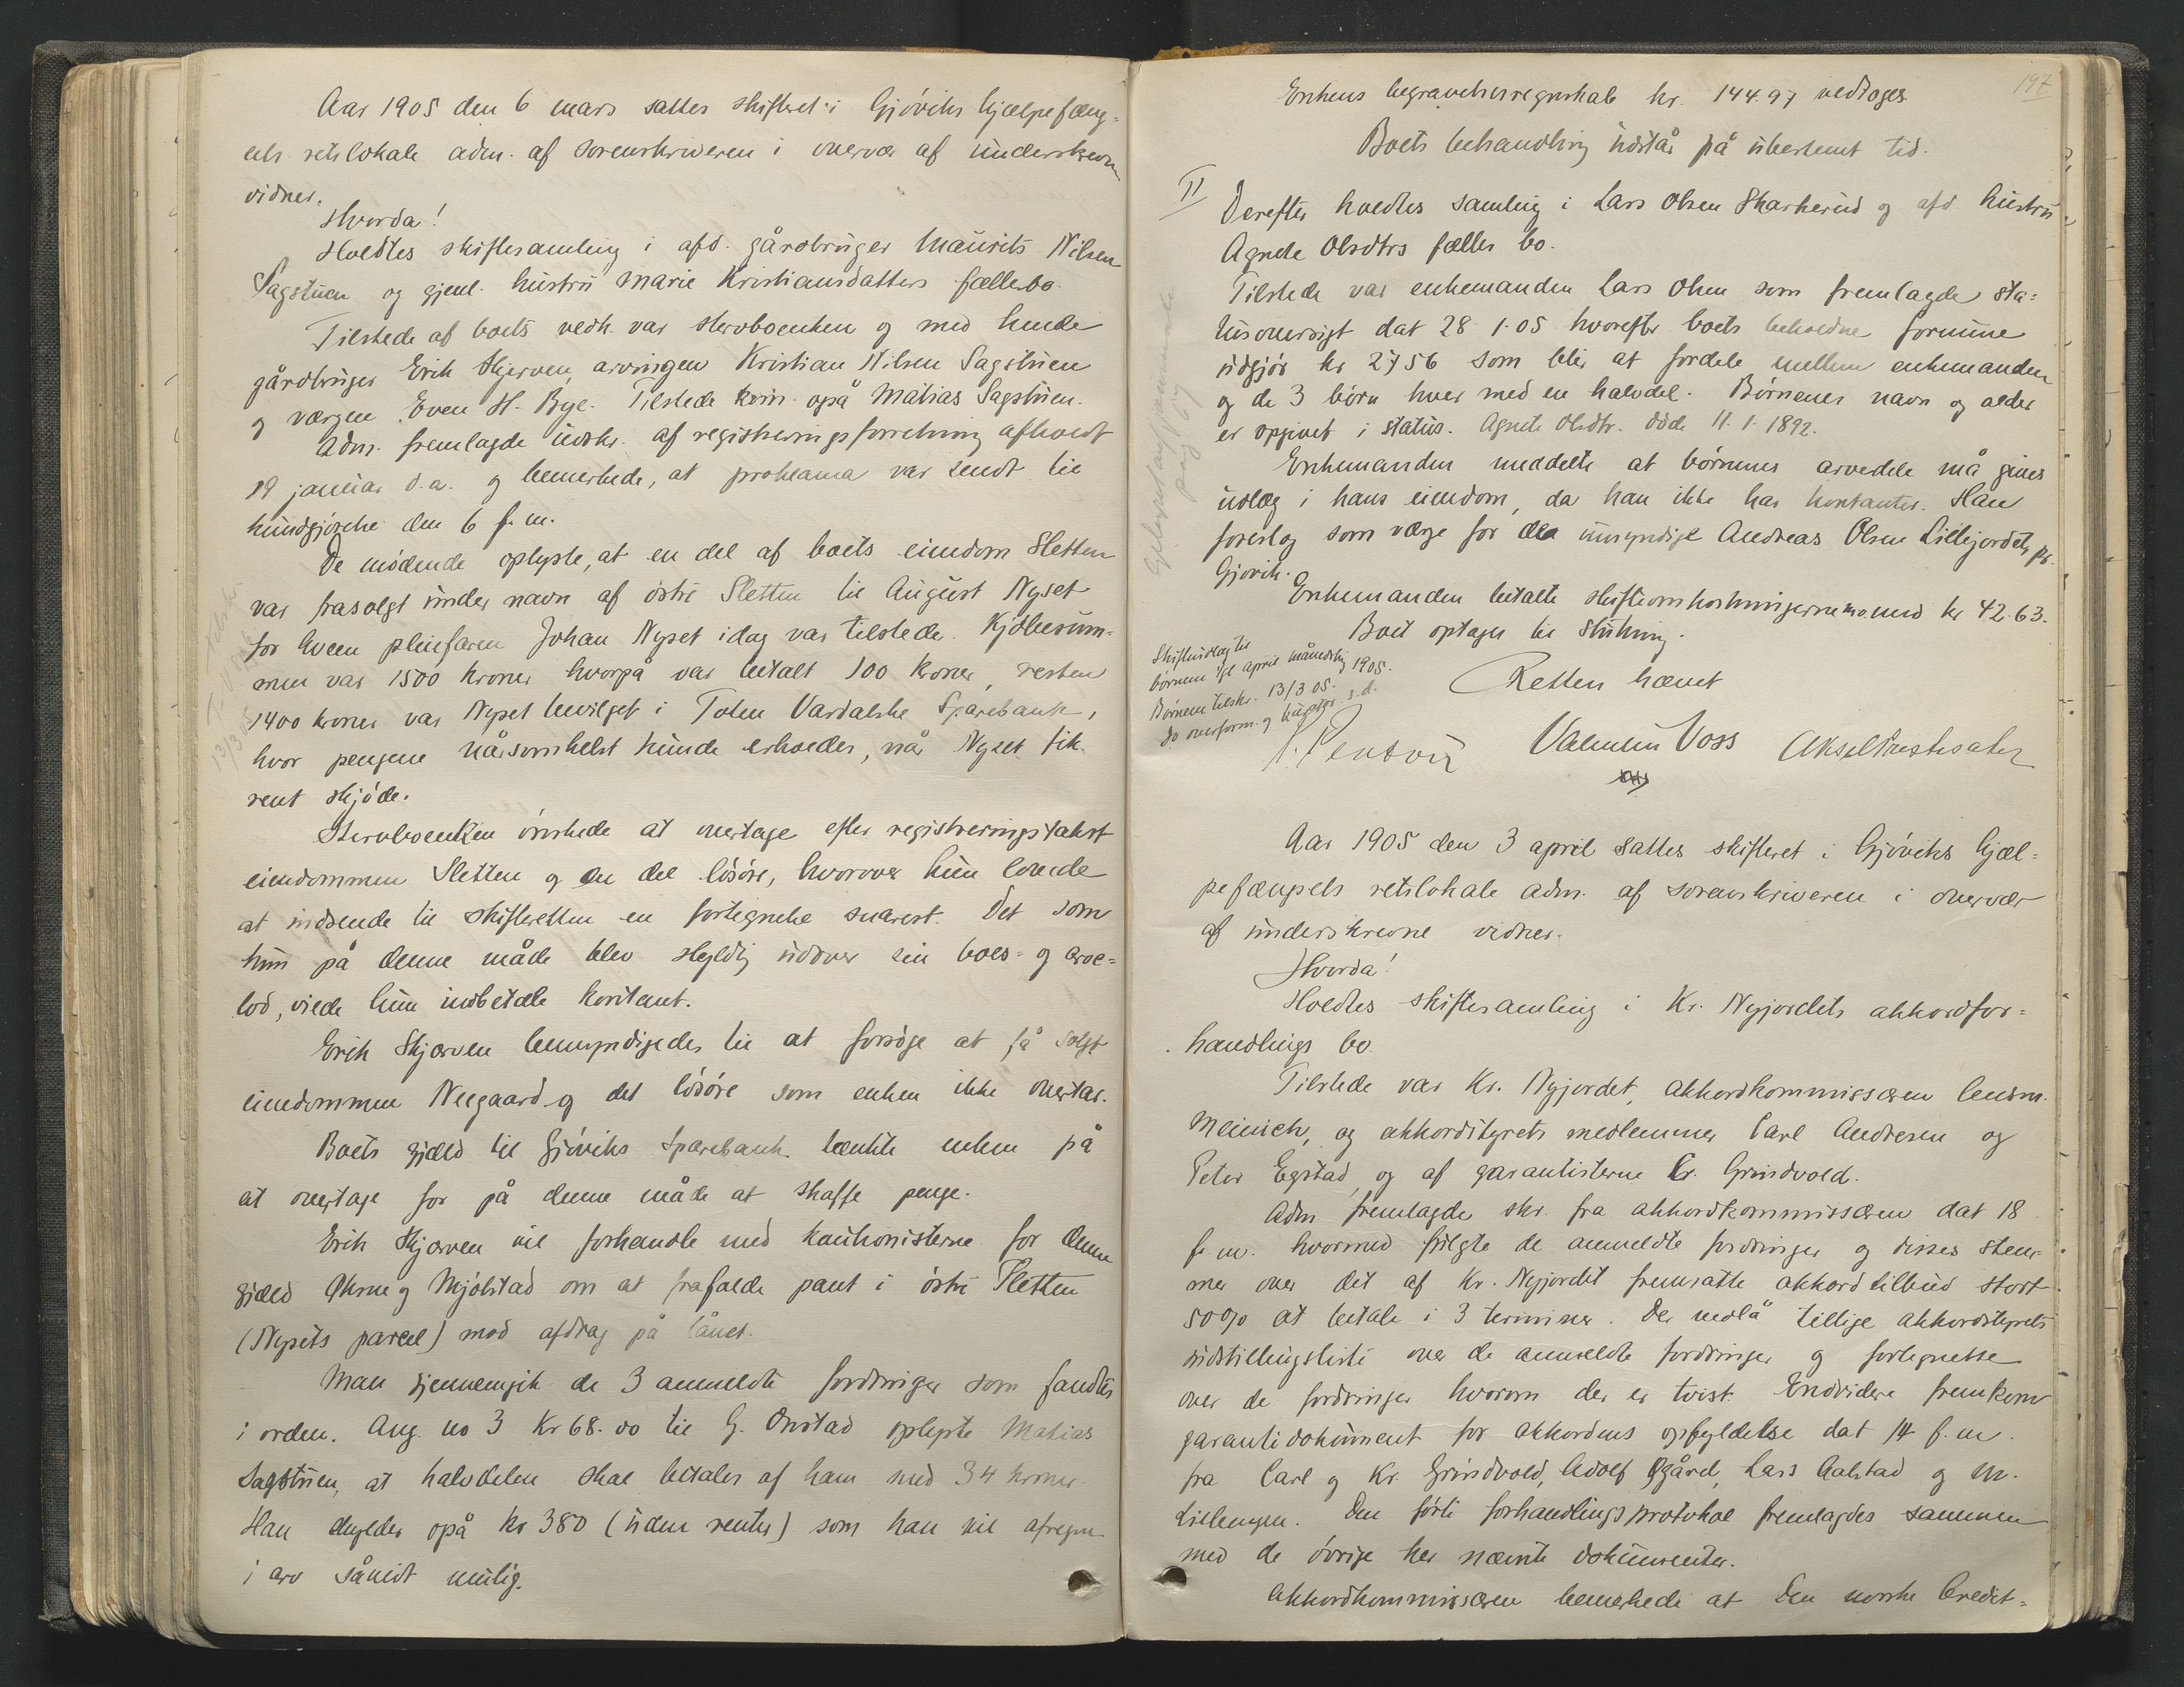 Aar 1905 den 6 mars sattes skifteret i Gjöviks hjælpefæng=
sels retslokale adm. af sorenskriveren i overvær af underskrevne
vidner.
Hvorda!
Holdtes skiftesamling i afd. gårdbruger Maurits Nilsen
Sagstuen og gjenl. hustru Marie Kristiansdatters fællesbo.
Tilstede af boets vedk. var stervboenken og med hende
gårdbruger Erik Skjerven, arvingen Kristian Nilsen Sagstuen
og værgen Even H. Bye. Tilstede kom også Matias Sagstuen.
Adm. fremlagde udskr. af registreringsforretning afholdt
19 januar d.a. og bemerkede, at proklama var sendt til
kundgjörelse den 6 f.m.
De mødende oplyste, at en del af boets eiendom Sletten
var frasolgt under navn af östre Sletten til August Nyset
for hvem pleiefaren Johan Nyset idag var tilstede. Kjöbesum=
men var 1500 kroner hvorpå var betalt 100 kroner, resten
1400 kroner var Nyset bevilget i Toten Vardalske Sparebank,
hvor pengene nårsomhelst kunde erholdes, når Nyset fik
rent skjöde.
Stervboenken önskede at overtage efter registreringstakst
eiendommen Sletten og en del lösöre, hvorover hun lovede
at indsende til skifteretten en fortegnelse snarest. Det som
hun på denne måde blev skyldig udover sin boes- og arve=
lod, vilde hun indbetale kontant.
Erik Skjerven bemyndigedes til at forsöge at få solgt
eiendommen Neegaard og det lösöre som enken ikke overtar.
Boets gjæld til Gjöviks Sparebank tænkte enken på
at overtage for på denne måde at skaffe penge.
Erik Skjerven vil forhandle med kautionisterne for denne
gjæld og Mjölstad om at frafalde pant i östre Sletten
(Nysets parcel) mod afdrag på lånet.
Man gjennemgik de 3 anmeldte fordringer som fandtes
i orden. Ang. no 3 Kr 68.00 til G. Onstad oplyste Matias
Sagstuen, at halvdelen skal betales af ham med 34 kroner.
Han skylder også kr 380 (uden renter) som han vil afregne
i arv såvidt mulig.
197
Enkens begravelsesregnskab kr. 144.97 vedtoges.
Boets behandling udstår på ubestemt tid.
II
Derefter holdtes samling i Lars Olsen Skarkerud og afd hustru
Agnete Olsdtrs fælles bo.
Tilstede var enkemanden Lars Olsen som fremlagde sta=
tusoversigt dat 28.1.05 hvorefter boets beholdne formue
udgjör kr 2756 som blir at fordele mellem enkemanden
og de 3 börn hver med en halvdel. Börnenes navn og alder
er opgivet i status. Agnete Olsdtr. döde 11.1.1892.
Enkemanden meddelte at börnenes arvedele må gives
udlæg i hans eiendom, da han ikke har kontanter. Han
foreslog som værge for de umyndige Andreas Olsen Lillejordet, pr.
Gjövik.
Enkemanden betalte skifteomkostningerne med kr 42.63.
Boet optages til slutning.
Skifteudlæg til
börnene tgl april månedsting 1905.
Börnene tilskr. 13/3 05.
do overform. og s.d.
Retten hævet
Valentin Voss Aksel Prestesæter
Aar 1905 den 3 april sattes skifteret i Gjöviks hjæl=
pefængsels retslokale adm. af sorenskriveren i overvær
af underskrevne vidner.
Hvorda!
Holdtes skiftesamling i Kr. Nyjordets akkordfor=
handlings bo.
Tilstede var Kr. Nyjordet, akkordkommissæren lensm.
Meinich, og akkordstyrets medlemmer Carl Andresen og
Peter Egstad, og af garantisterne Kr. Grindvold.
Adm fremlagde skr. fra akkordkommissæren dat 18
f.m. hvormed fulgte de anmeldte fordringer og disses stem=
mer over det af Kr. Nyjordet fremsatte akkordtilbud stort
50% at betale i 3 terminer. Der vedlå tillige akkordstyrets
indstillingsliste over de anmeldte fordringer og fortegnelse
over de fordringer hvorom der er tvist. Endvidere fremkom
garantidokument for akkordens opfyldelse dat 14 f.m.
fra Carl og Kr. Grindvold, Adolf Ggård, Lars Aalstad og M.
Lillengen. Den förte forhandlingsprotokol fremlagdes sammen
med de övrige her nævnte dokumenter.
Akkordkommissæren bemerkede at Den norske Credit=